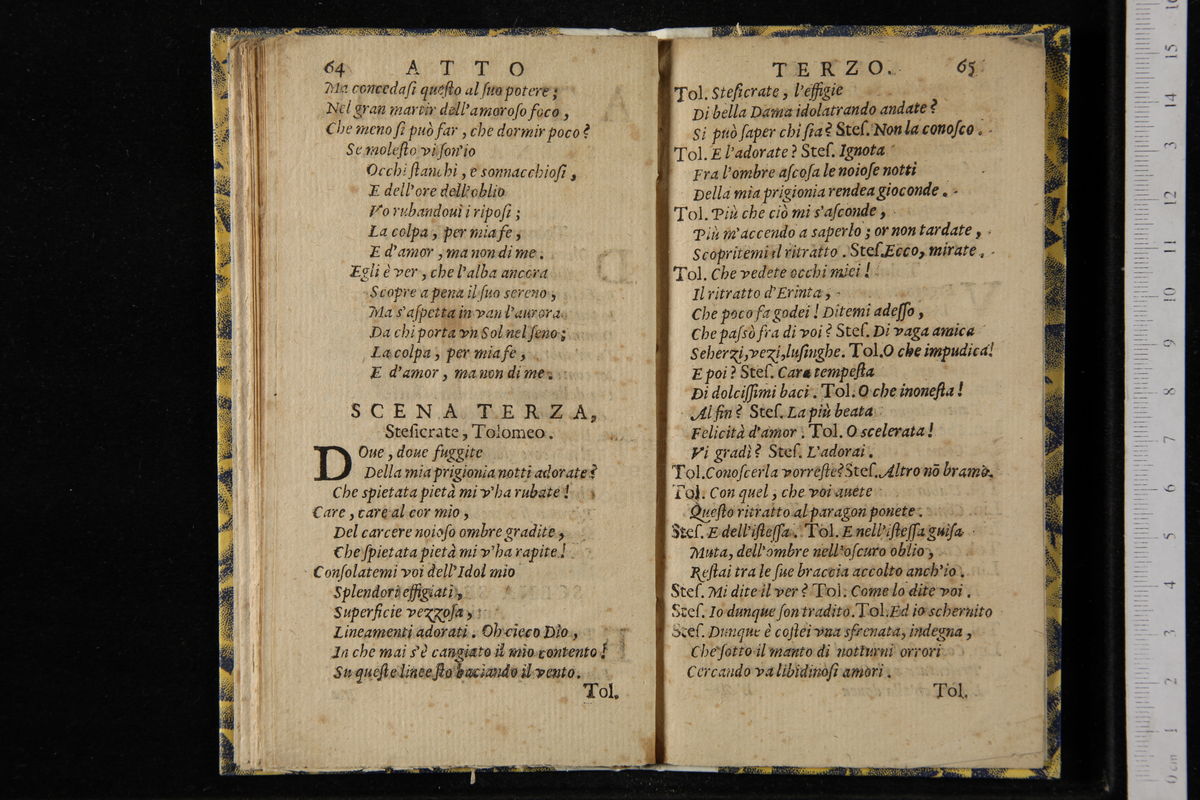 64 ATTO
Ma concedasi questo al suo potere;
Nel gran martir dell'amoroso foco,
Che meno si può far, che dormir poco?
Se molesto vi son'io
Occhi stanchi, e sonnacchiosi,
E dell'ore dell'oblio
Vo rubandoui i riposi;
La colpa, per mia fe,
E d'amor, ma non di me.
Egli è ver, che l'alba ancora
Scopre a pena il suo sereno,
Ma s'aspetta in van l'aurora
Da chi porta vn Sol nel seno;
La colpa, per mia fe,
E d'amor, ma non di me.
SCENA TERZA,
Steficrate, Tolomeo.
DOue, doue fuggite
Della mia prigionia notti adorate?
Che spietata pietà mi v'ha rubate!
Care, care al cor mio,
Del carcere noioso ombre gradite,
Che spietata pietà mi v'ha rapite!
Consolatemi voi dell'Idol mio
Splendori effigiati,
Superficie vezzosa,
Lineamenti adorati. Oh cieco Dio,
In che mai s'è cangiato il mio contento!
Su queste linee sto baciando il vento.
Tol.
TERZO. 65
Tol. Steficrate, l'effigie
Di bella Dama idolatrando andate?
Si può saper chi sia? Stef. Non la conosco.
Tol. E l'adorate? Stef. Ignota
Fra l'ombre ascosa le noiose notti
Della mia prigionia rendea gioconde.
Tol. Più che ciò mi s'asconde,
Più m'accendo a saperlo; or non tardate,
Scopritemi il ritratto. Stef. Ecco, mirate.
Tol. Che vedete occhi miei!
Il ritratto d'Erinta,
Che poco fa godei! Ditemi adesso,
Che passò fra di voi? Stef. Di vaga amica
Scherzi, vezi, lusinghe. Tol. O che impudica!
E poi? Stef. Cara tempesta
Di dolcissimi baci. Tol. O che inonesta!
Al fin? Stef. La più beata
Felicità d'amor. Tol. O scelerata!
Vi gradì? Stef. L'adorai.
Tol. Conoscerla vorreste? Stef. Altro nõ bramo.
Tol. Con quel, che voi auete
Questo ritratto al paragon ponete.
Stef. E dell'istessa. Tol. E nell'istessa guisa
Muta, dell'ombre nell'oscuro oblio,
Restai tra le sue braccia accolto anch'io.
Stef. Mi dite il ver? Tol. Come lo dite voi.
Stef. Io dunque son tradito. Tol. Ed io schernito
Stef. Dunque è costei vna sfrenata, indegna,
Che sotto il manto di notturni orrori
Cercando va libidinosi amori.
Tol.